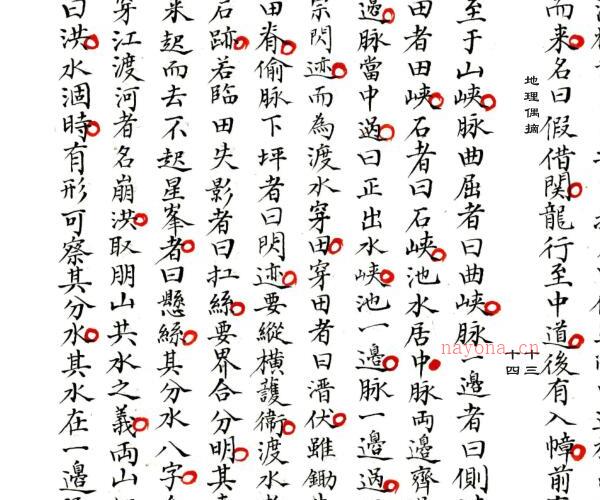 而来名曰假借関龍行至中道後有入幛前
地理偶摘
十三
十四
至于山峽脉曲屈者曰曲峽脉一邊者曰側
田者田峽石者曰石峽池水居中脉両邊齊
邊脉當中过曰正出水峽池一邊脉一邊过
宗閃迹而為渡水穿田穿田者曰潛伏雖鋤
田脊偷脉下坪者曰閃迹要縱橫護衛渡水
石跡若臨田失影者曰扛絲要界合分明其
來起而去不起星峯者曰懸絲其分水八字
穿江渡河者名崩洪取朋山共水之義両山
曰洪水涸時有形可察其分水其水在一邊
nayona.cn